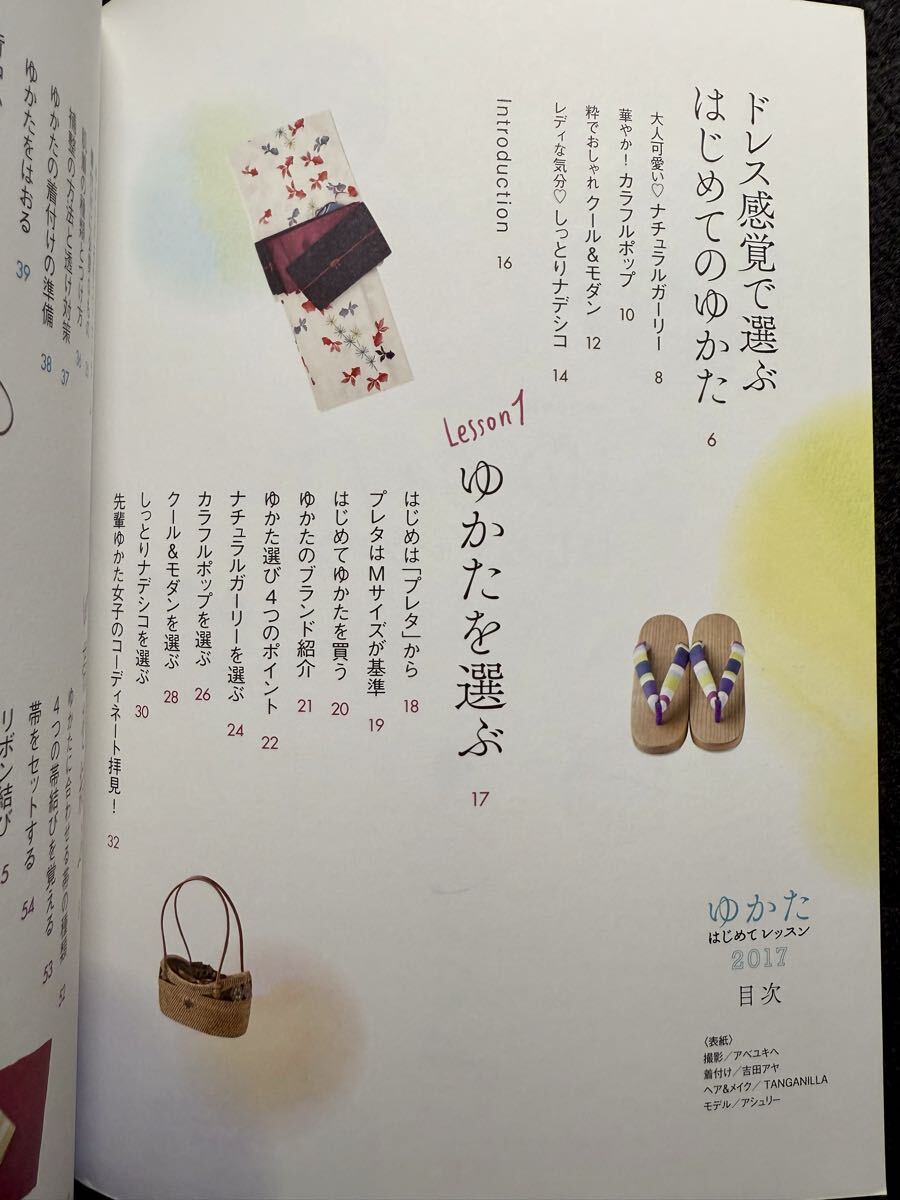 ドレス感覚で選ぶ
はじめてのゆかた 6
大人可愛い♡ ナチュラルガーリー 8
華やか！カラフルポップ 10
粋でおしゃれ クール&モダン 12
レディな気分♡ しっとりナデシコ 14
Introduction 16
Lesson1
ゆかたを選ぶ 17
はじめは「プレタ」から 18
プレタはMサイズが基準 19
はじめてゆかたを買う 20
ゆかたのブランド紹介 21
ゆかた選び 4つのポイント 22
ナチュラルガーリーを選ぶ 24
カラフルポップを選ぶ 26
クール&モダンを選ぶ 28
しっとりナデシコを選ぶ 30
先輩ゆかた女子のコーディネート拝見！ 32
ゆかた
はじめてレッスン
2017
目次
〈表紙〉
撮影／アベユキヘ
着付け／吉田アヤ
ヘア&メイク／TANGANILLA
モデル／アシュリー
補整の方法と透け対策 37
ゆかたの着付けの準備 38
ゆかたをはおる 39
ゆかたに合わせる帯の種類 52
4つの帯結びを覚える 53
帯をセットする 54
リボン結び